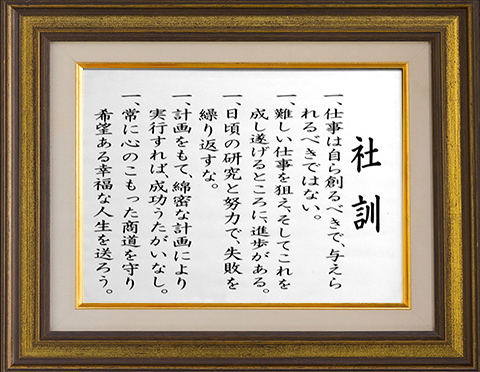 社訓
一、仕事は自ら創るべきで、与えら
れるべきではない。
一、難しい仕事を狙え、そしてこれを
成し遂げるところに、進歩がある。
一、日頃の研究と努力で、失敗を
繰り返すな。
一、計画をもて、綿密な計画により
実行すれば、成功うたがいなし。
一、常に心のこもった商道を守り
希望ある幸福な人生を送ろう。